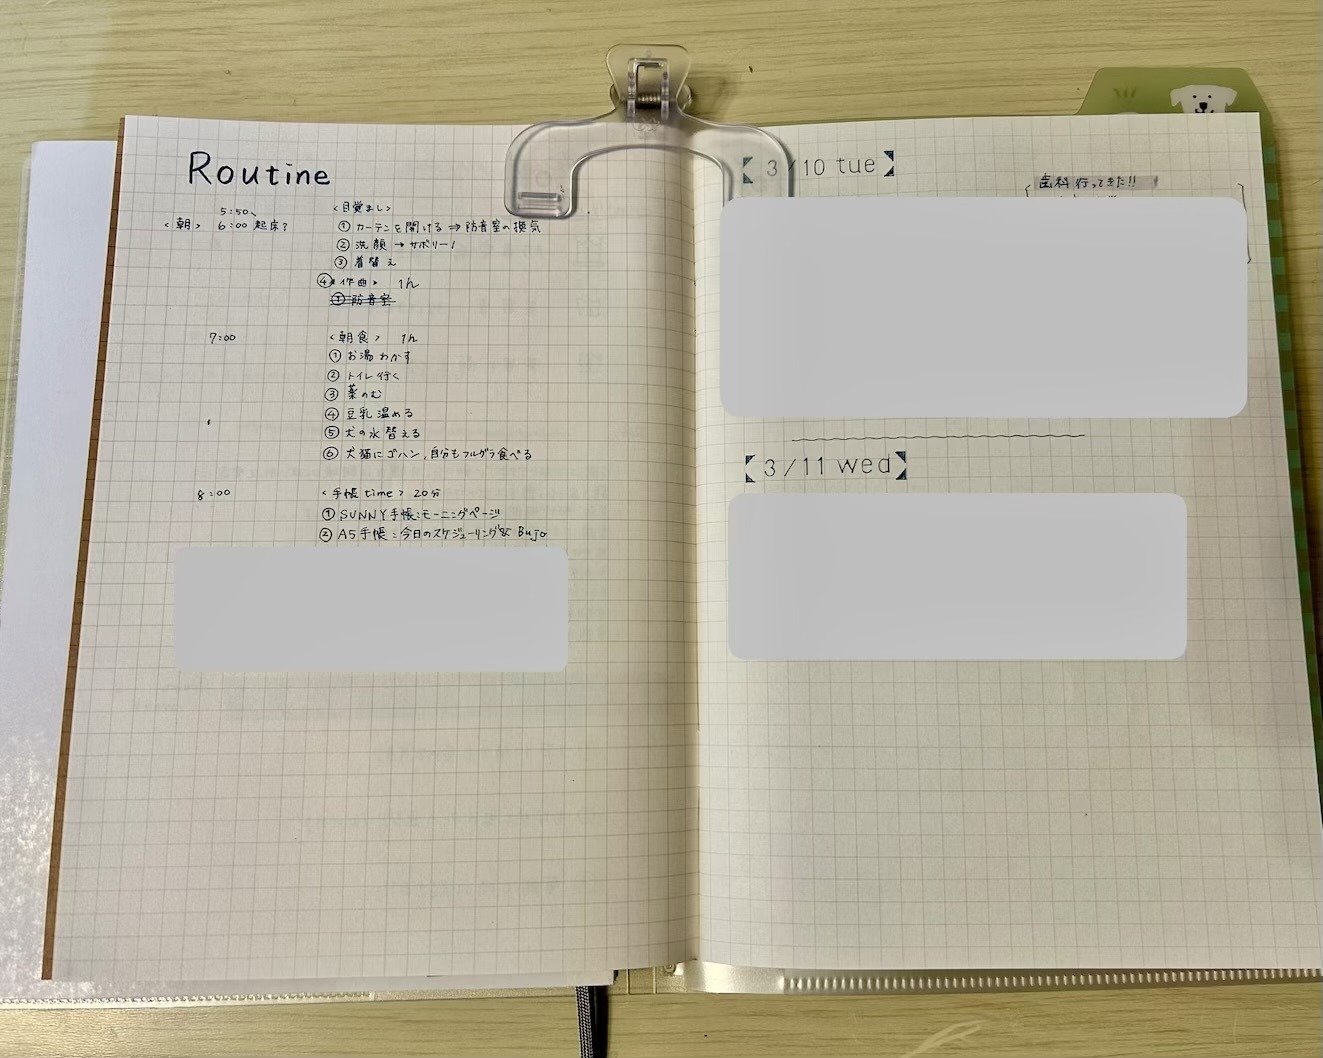 Routine
5:50、
〈朝〉 6:00 起床?
〈目覚まし〉
① カーテンを開ける ⇒ 防音室の換気
② 洗顔 → サボリーノ
③ 着替え
④〈作曲〉 1h
① 防音室
7:00 〈朝食〉 1h
① お湯わかす
② トイレ行く
③ 薬のむ
④ 豆乳温める
⑤ 犬の水替える
⑥ 犬猫にゴハン,自分もフルグラ食べる
8:00 〈手帳time〉 20分
① SUNNY手帳:モーニングページ
② A5手帳:今日のスケジューリング& Bujo
【3/10 tue】
歯科行ってきた!!
【3/11 wed】